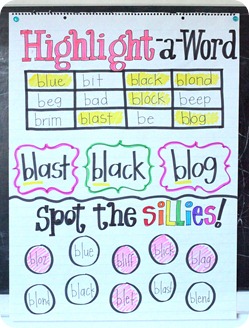 Highlight-a-Word
blue bit black blond
beg bad block beep
brim blast be blog
blast black blog
Spot the sillies!
bloz blue bliff blick blag
blond black blef blast blend